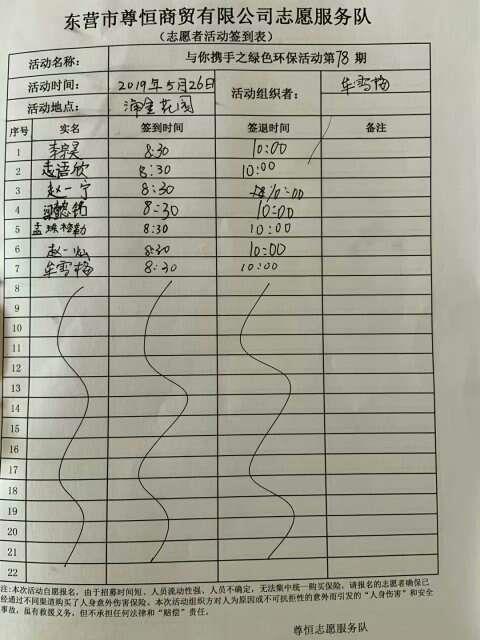 东营市尊恒商贸有限公司志愿服务队
（志愿者活动签到表）
活动名称： 与你携手之绿色环保活动第78期
活动时间： 2019年5月26日 活动组织者： 牟雪梅
活动地点： 花园
序号 实名 签到时间 签退时间 备注
1 8:30 10:00
2 8:30 10:00
3 赵一宁 8:30 10:00
4 8:30 10:00
5 8:30 10:00
6 赵一 8:30 10:00
7 牟雪梅 8:30 10:00
8
9
10
11
12
13
14
15
16
17
18
19
20
21
22
注：本次活动自愿报名，由于招募时间短、人员流动性强、人员不确定，无法集中统一购买保险，请报名的志愿者确保已
经通过不同渠道购买了人身意外伤害保险。本次活动组织方对人为原因或不可抗拒性的意外而引发的“人身伤害”和安全
事故，虽有救援义务，但不承担任何法律和“赔偿”责任。
尊恒志愿服务队